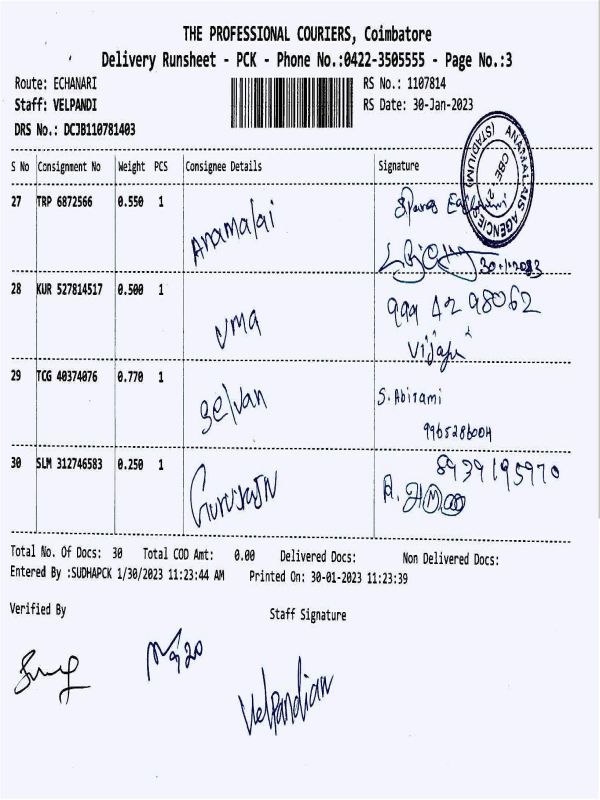 THE PROFESSIONAL COURIERS, Coimbatore
Delivery Runsheet - PCK - Phone No.:0422-3505555 - Page No.:3
Route: ECHANARI
RS No.: 1107814
Staff: VELPANDI
RS Date: 30-Jan-2023
DRS No.: DCJB110781403
ANAMALAIS AGENCIES (STADIUM) CBE - 2
S No Consignment No Weight PCS Consignee Details Signature
27 TRP 6872566 0.550 1 Anamalai
28 KUR 527814517 0.500 1 uma 999 42 98062
29 TCG 40374076 0.770 1 Selvan S. Abirami
30 SLM 312746583 0.250 1 Gururajn 8939195970
Total No. Of Docs: 30 Total COD Amt: 0.00 Delivered Docs: Non Delivered Docs:
Entered By :SUDHAPCK 1/30/2023 11:23:44 AM Printed On: 30-01-2023 11:23:39
Verified By Staff Signature
Velpandian